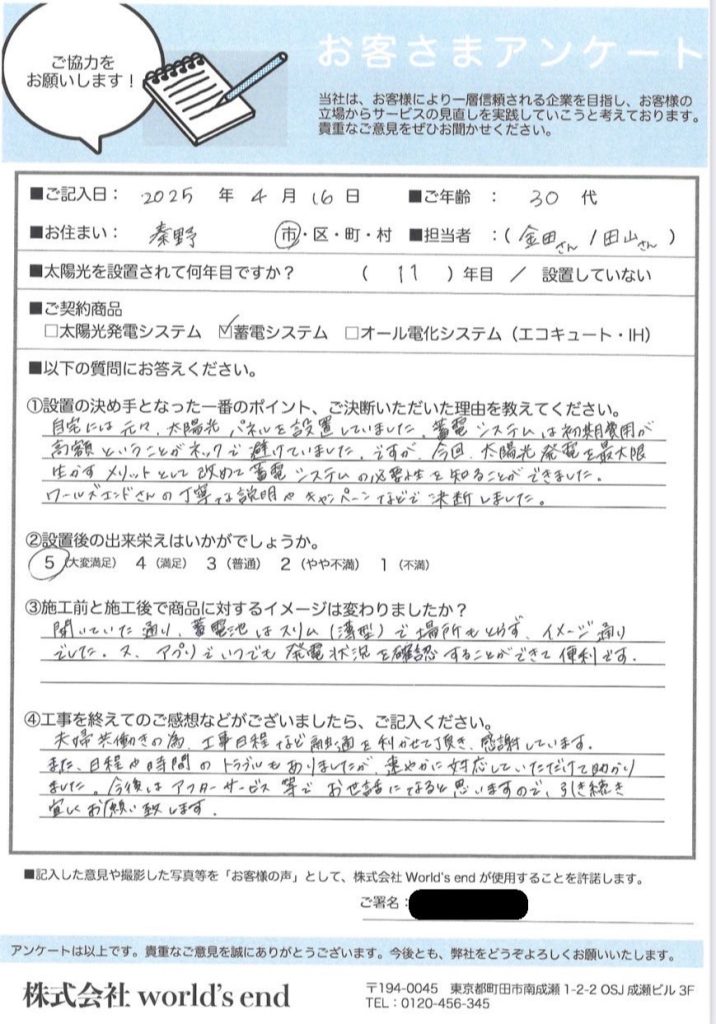 ご協力を
お願いします！
お客さまアンケート
当社は、お客様により一層信頼される企業を目指し、お客様の
立場からサービスの見直しを実践していこうと考えております。
貴重なご意見をぜひお聞かせください。
■ご記入日： 2025 年 4 月 16 日 ■ご年齢 ： 30 代
■お住まい： 秦野 市・区・町・村 ■担当者 ：( 金田さん / 田山さん )
■太陽光を設置されて何年目ですか？ （ 11 ）年目 ／ 設置していない
■ご契約商品
□太陽光発電システム ☑蓄電システム □オール電化システム（エコキュート・IH）
■以下の質問にお答えください。
①設置の決め手となった一番のポイント、ご決断いただいた理由を教えてください。
自宅には元々、太陽光パネルを設置していました。蓄電システムは初期費用が
高額ということがネックで避けていました。ですが、今回、太陽光発電を最大限
生かすメリットとして改めて蓄電システムの必要性を知ることができました。
ワールズエンドさんの丁寧な説明やキャンペーンなどで決断しました。
②設置後の出来栄えはいかがでしょうか。
5（大変満足） 4（満足） 3（普通） 2（やや不満） 1（不満）
③施工前と施工後で商品に対するイメージは変わりましたか？
聞いていた通り、蓄電池はスリム(薄型)で場所もとらず、イメージ通り
でした。又、アプリでいつでも発電状況を確認することができて便利です。
④工事を終えてのご感想などがございましたら、ご記入ください。
夫婦共働きの為、工事日程など融通を利かせて頂き、感謝しています。
また、日程や時間のトラブルもありましたが速やかに対応していただけて助かり
ました。今後はアフターサービス等でお世話になると思いますので、引き続き
宜しくお願い致します。
■記入した意見や撮影した写真等を「お客様の声」として、株式会社 World's end が使用することを許諾します。
ご署名：
アンケートは以上です。貴重なご意見を誠にありがとうございます。今後とも、弊社をどうぞよろしくお願いいたします。
株式会社 world's end
〒194-0045 東京都町田市南成瀬 1-2-2 OSJ 成瀬ビル 3F
TEL：0120-456-345